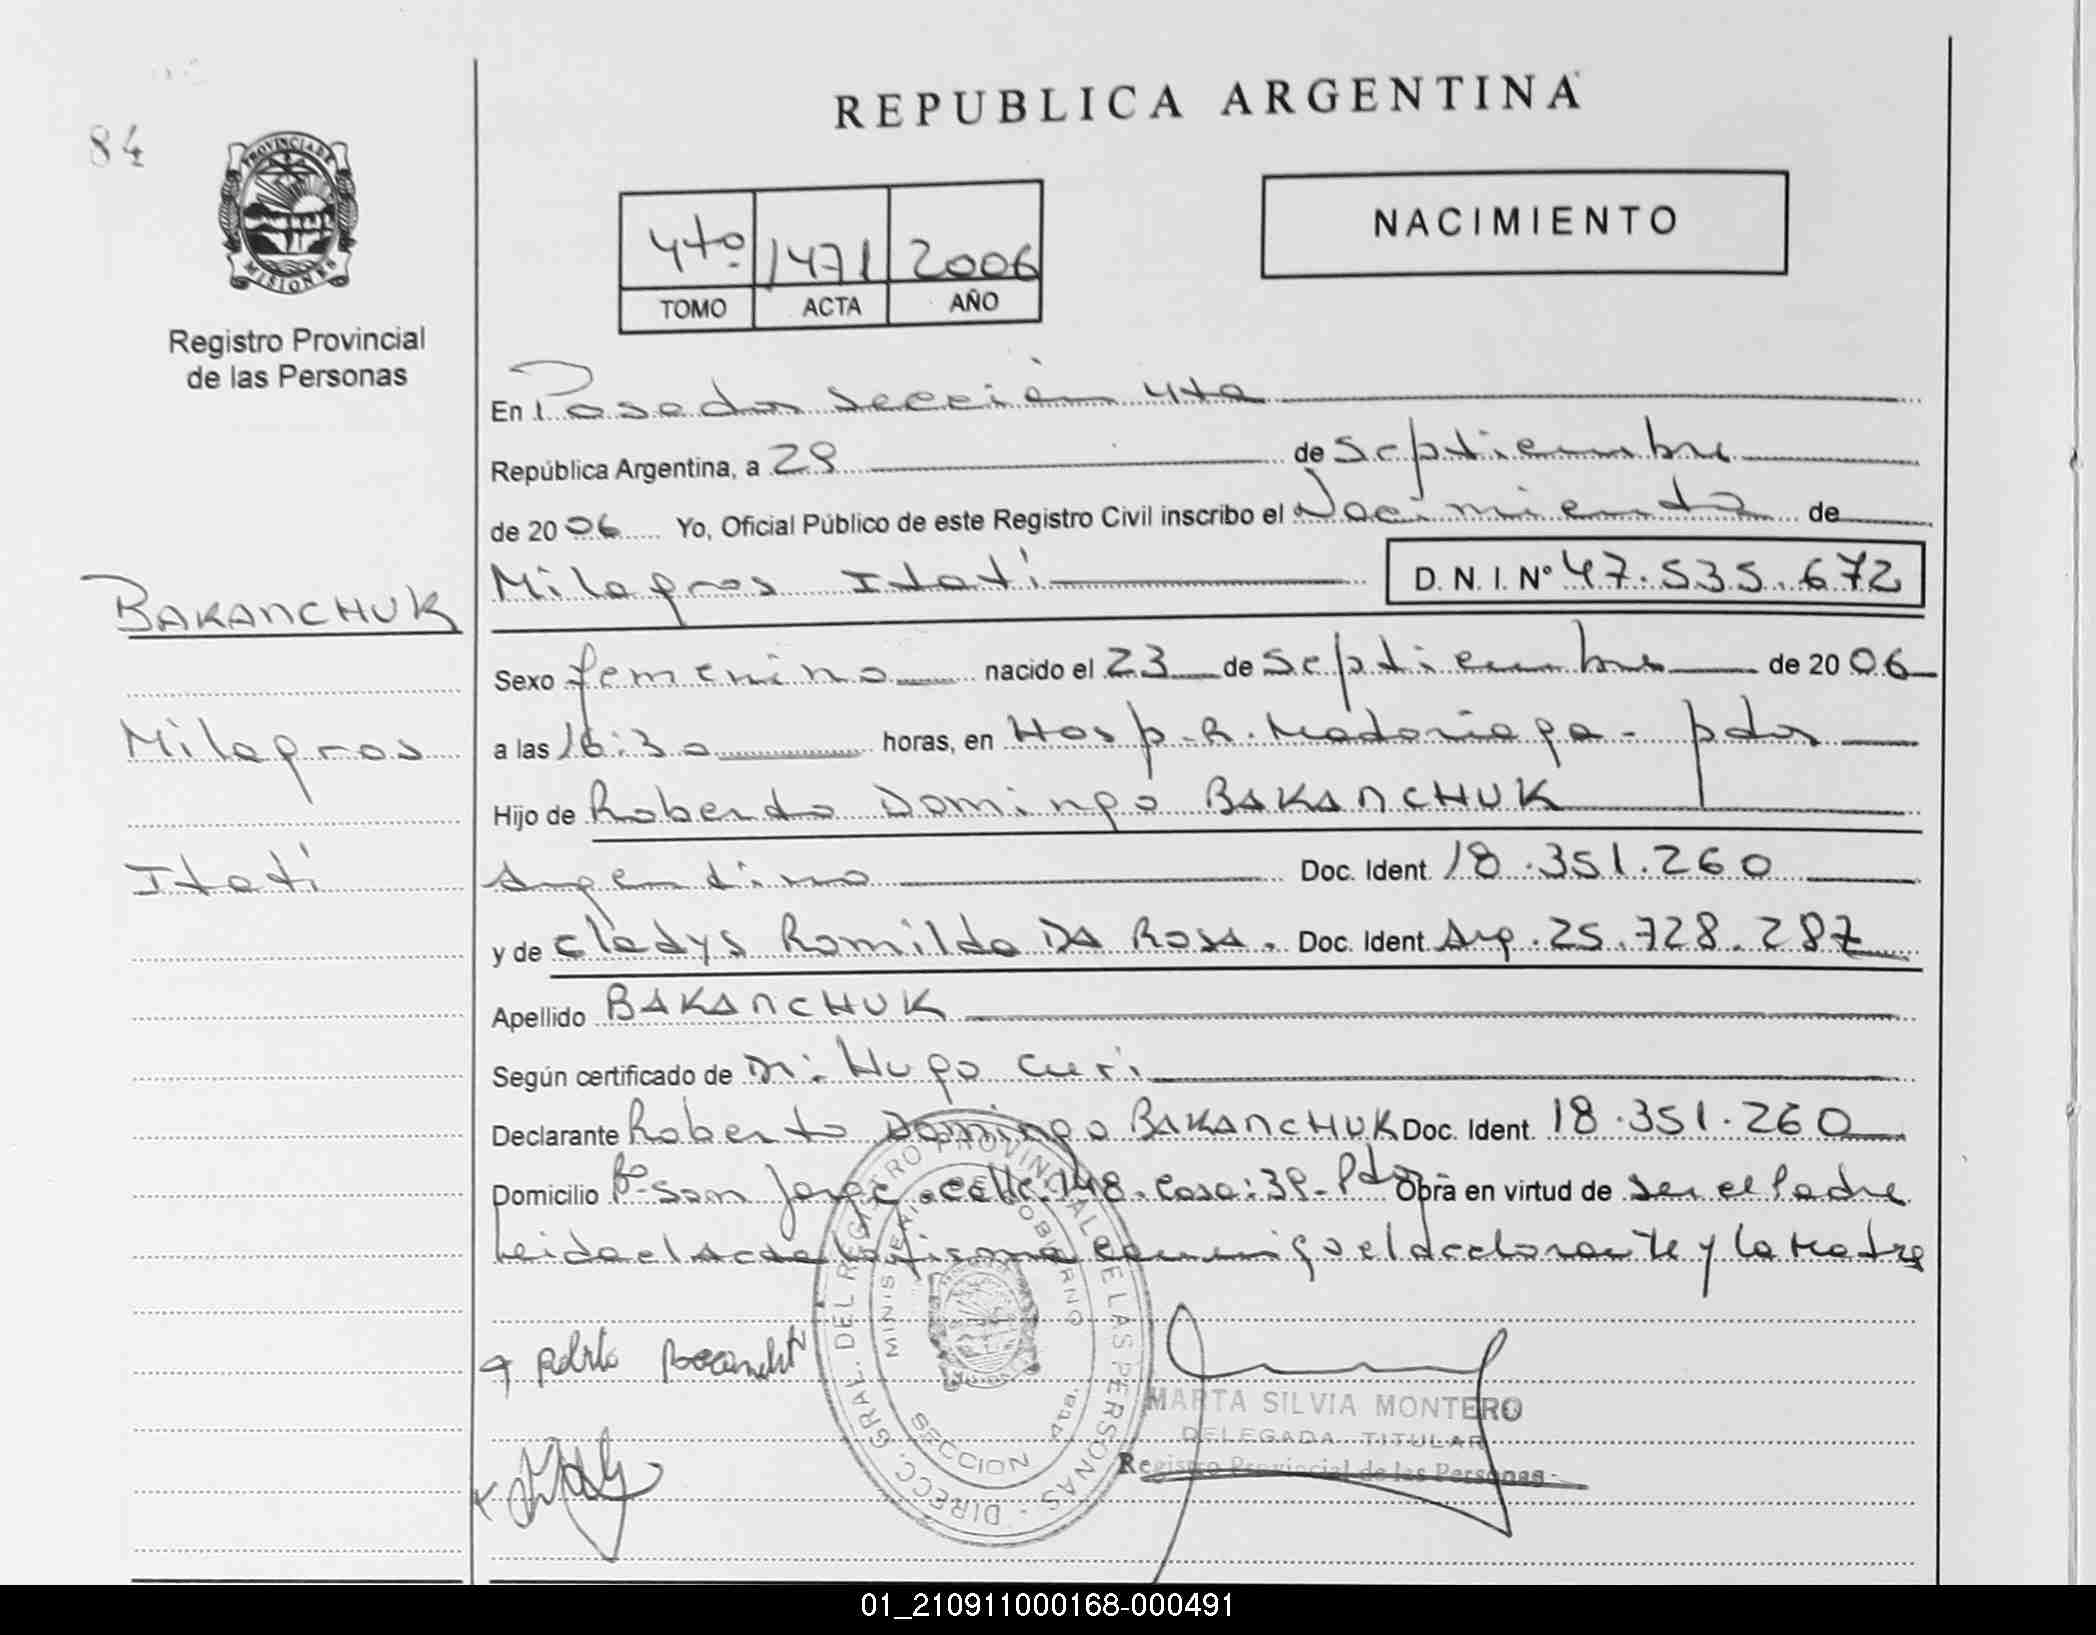 REPUBLICA ARGENTINA
84
PROVINCIA DE
MISIONES
Registro Provincial
de las Personas
4to 1471 2006
TOMO ACTA AÑO
NACIMIENTO
En Posadas sección 4ta
República Argentina, a 28 de Septiembre
de 2006 Yo, Oficial Público de este Registro Civil inscribo el Nacimiento de
Milagros Itatí D. N. I. N° 47.535.672
BAKANCHUK
Milagros
Itatí
Sexo femenino nacido el 23 de Septiembre de 2006
a las 16:30 horas, en Hosp. R. Madariaga - pdas
Hijo de Roberto Domingo BAKANCHUK
Argentino Doc. Ident. 18.351.260
y de Gladys Romilda DA ROSA. Doc. Ident. Arg. 25.728.287
Apellido BAKANCHUK
Según certificado de Dr: Hugo Curi
Declarante Roberto Domingo BAKANCHUK Doc. Ident. 18.351.260
Domicilio Bº San Jorge. calle 148. Casa: 39- Pdas Obra en virtud de ser el Padre
Leida el Acta la firma conmigo el declarante y la Madre
DIRECC. GRAL. DEL REGISTRO PROVINCIAL DE LAS PERSONAS
MINISTERIO GOBIERNO
SECCION 4ta.
MARTA SILVIA MONTERO
DELEGADA TITULAR
Registro Provincial de las Personas
01_210911000168-000491